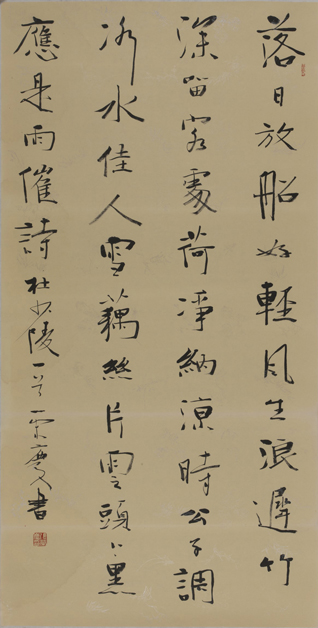 落日放船好輕風生浪遲竹
深留客處荷淨納涼時公子調
冰水佳人雪藕絲片雲頭上黑
應是雨催詩杜少陵一首宗慶書